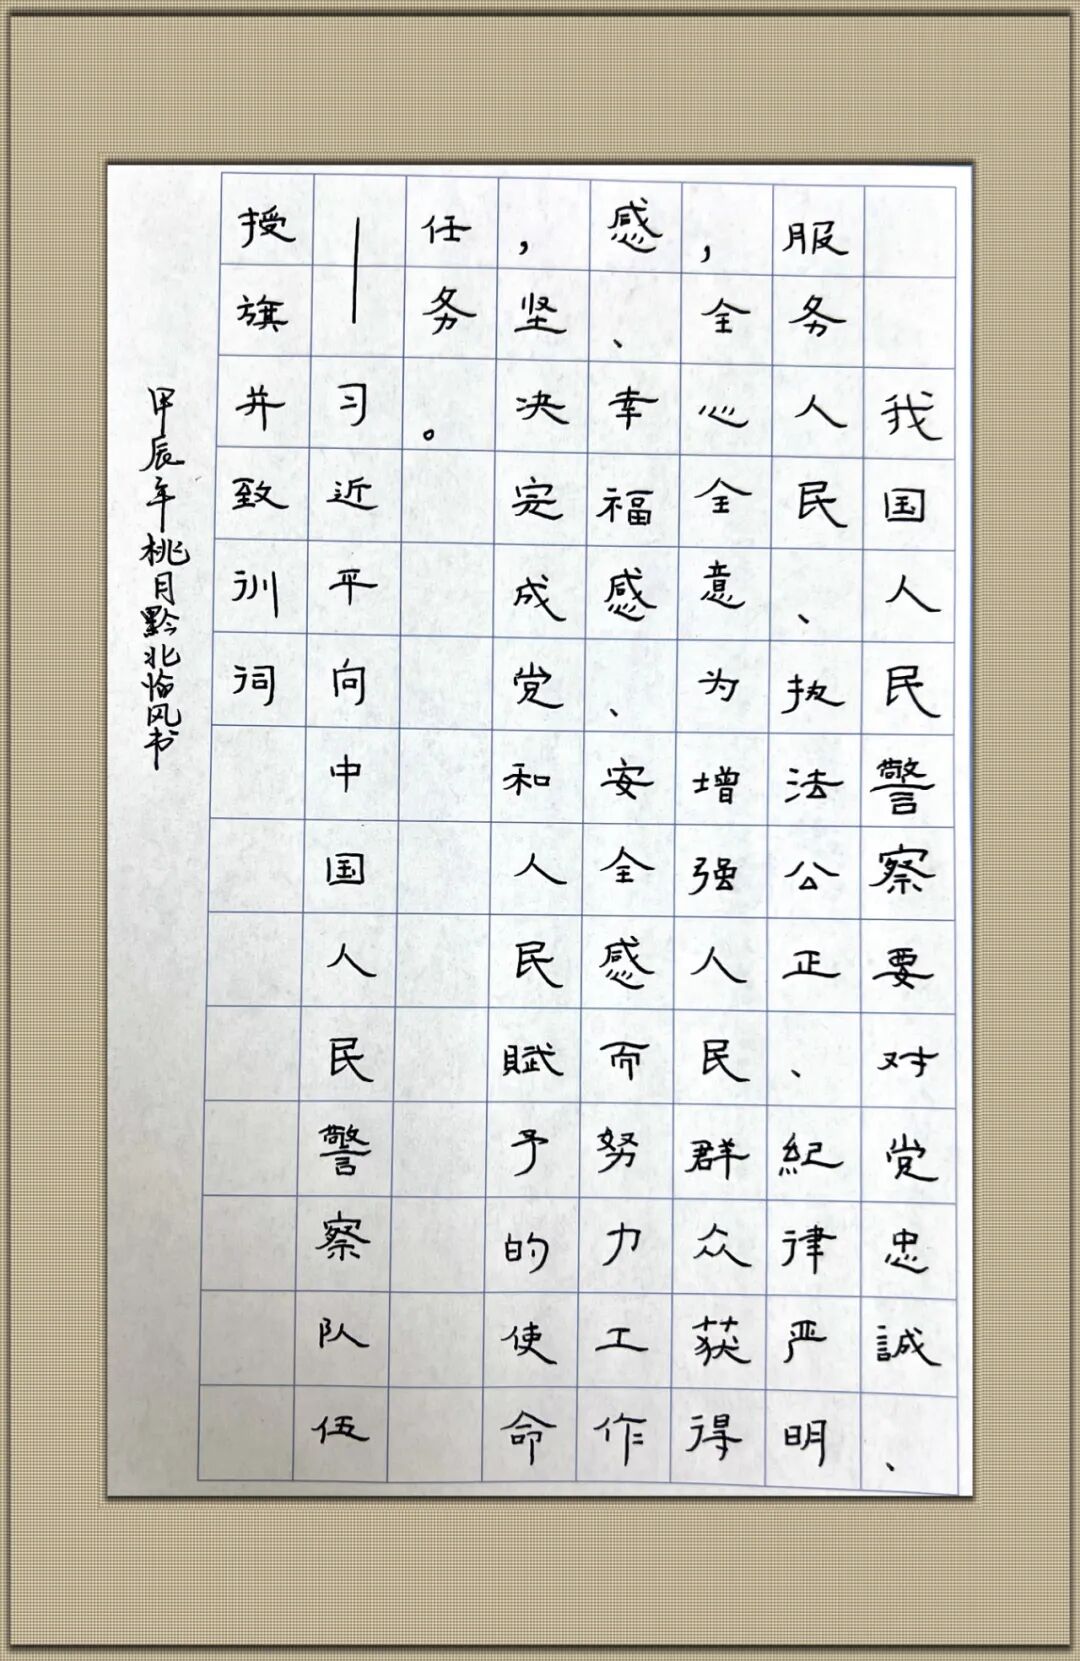 我国人民警察要对党忠誠、
服务人民、执法公正、紀律严明
，全心全意为增强人民群众获得
感、幸福感、安全感而努力工作
，坚决完成党和人民赋予的使命
任务。
——习近平向中国人民警察队伍
授旗并致训词
甲辰年桃月黔北临风书